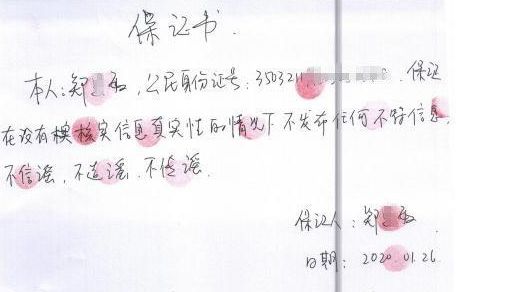 保证书.
本人:郑,公民身份证号:350321 保证
在没有模核实信息真实性的情况下不发布任何不好信息,
不信谣,不造谣.不传谣.
保证人:郑
日期:2020.01.26